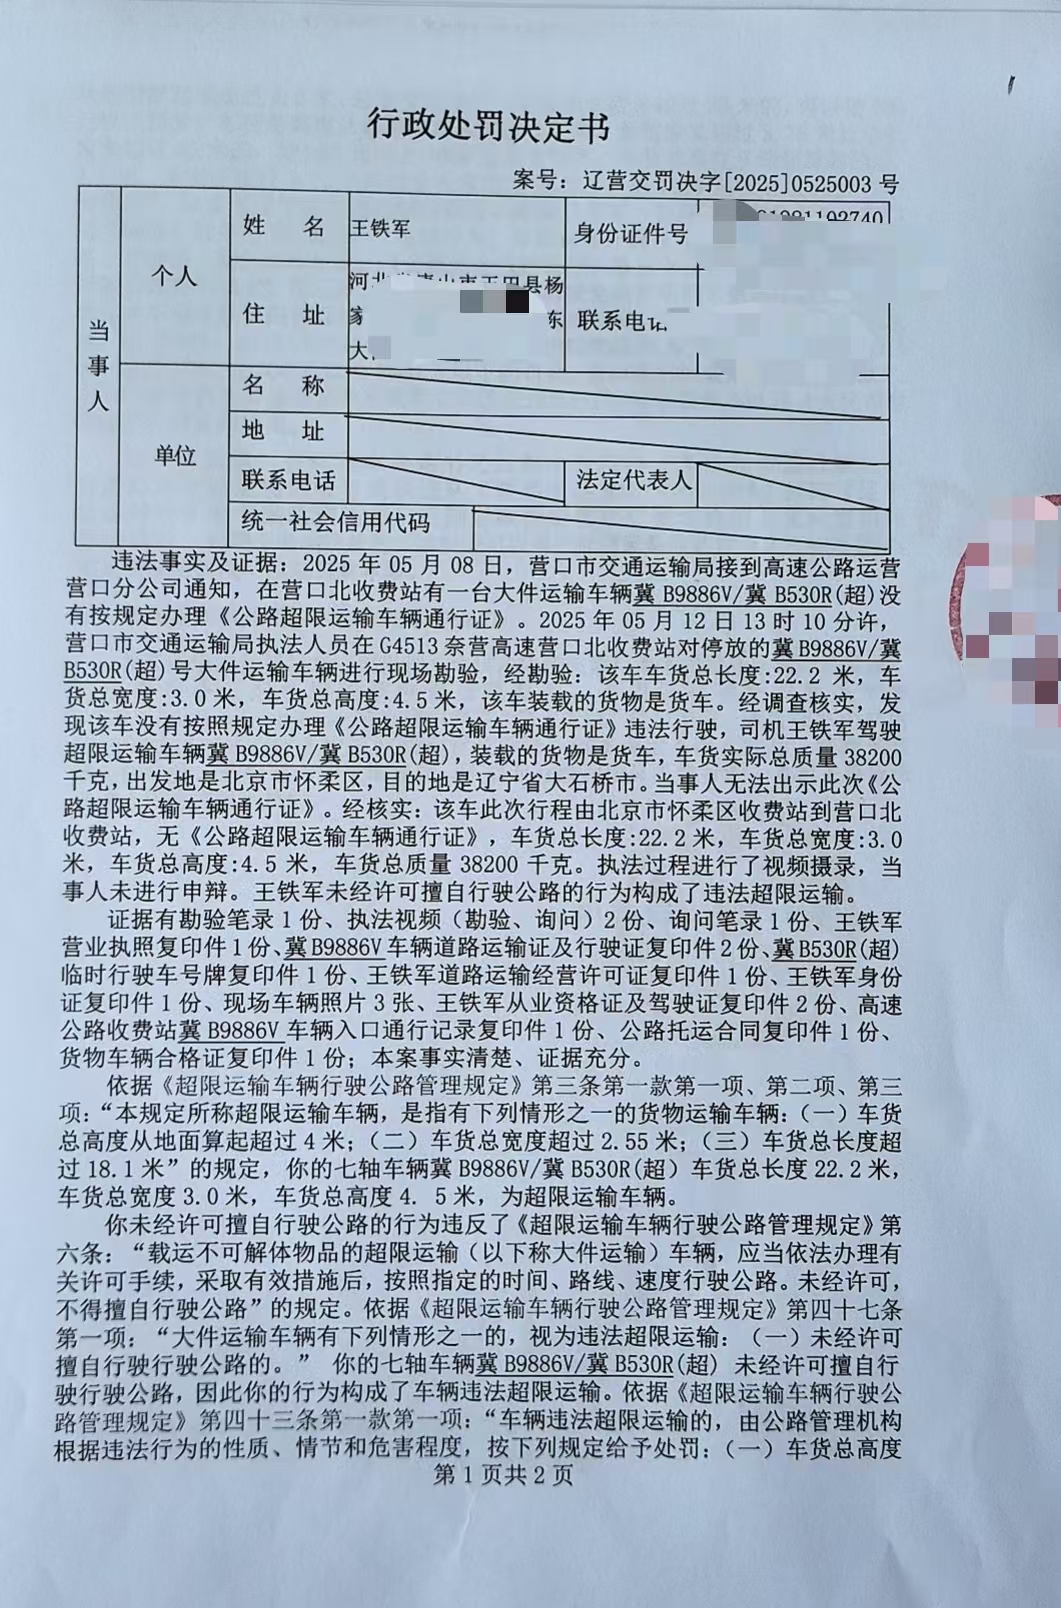 行政处罚决定书
案号：辽营交罚决字[2025]0525003号
当事人
个人
姓 名
王铁军
身份证件号
住 址
河北
县杨
家
东
大
联系电话
单位
名 称
地 址
联系电话
法定代表人
统一社会信用代码
违法事实及证据：2025年05月08日，营口市交通运输局接到高速公路运营
营口分公司通知，在营口北收费站有一台大件运输车辆冀B9886V/冀B530R(超)没
有按规定办理《公路超限运输车辆通行证》。2025年05月12日13时10分许，
营口市交通运输局执法人员在G4513奈营高速营口北收费站对停放的冀B9886V/冀
B530R(超)号大件运输车辆进行现场勘验，经勘验：该车车货总长度:22.2 米，车
货总宽度:3.0 米，车货总高度:4.5 米，该车装载的货物是货车。经调查核实，发
现该车没有按照规定办理《公路超限运输车辆通行证》违法行驶，司机王铁军驾驶
超限运输车辆冀B9886V/冀B530R(超)，装载的货物是货车，车货实际总质量38200
千克，出发地是北京市怀柔区，目的地是辽宁省大石桥市。当事人无法出示此次《公
路超限运输车辆通行证》。经核实：该车此次行程由北京市怀柔区收费站到营口北
收费站，无《公路超限运输车辆通行证》，车货总长度:22.2 米，车货总宽度:3.0
米，车货总高度:4.5 米，车货总质量38200 千克。执法过程进行了视频摄录，当
事人未进行申辩。王铁军未经许可擅自行驶公路的行为构成了违法超限运输。
证据有勘验笔录1份、执法视频（勘验、询问）2份、询问笔录1份、王铁军
营业执照复印件1份、冀B9886V车辆道路运输证及行驶证复印件2份、冀B530R(超)
临时行驶车号牌复印件1份、王铁军道路运输经营许可证复印件1份、王铁军身份
证复印件1份、现场车辆照片3张、王铁军从业资格证及驾驶证复印件2份、高速
公路收费站冀B9886V车辆入口通行记录复印件1份、公路托运合同复印件1份、
货物车辆合格证复印件1份；本案事实清楚、证据充分。
依据《超限运输车辆行驶公路管理规定》第三条第一款第一项、第二项、第三
项：“本规定所称超限运输车辆，是指有下列情形之一的货物运输车辆：（一）车货
总高度从地面算起超过4米；（二）车货总宽度超过2.55米；（三）车货总长度超
过18.1米”的规定，你的七轴车辆冀B9886V/冀B530R(超）车货总长度22.2米，
车货总宽度3.0米，车货总高度4. 5米，为超限运输车辆。
你未经许可擅自行驶公路的行为违反了《超限运输车辆行驶公路管理规定》第
六条：“载运不可解体物品的超限运输（以下称大件运输）车辆，应当依法办理有
关许可手续，采取有效措施后，按照指定的时间、路线、速度行驶公路。未经许可，
不得擅自行驶公路”的规定。依据《超限运输车辆行驶公路管理规定》第四十七条
第一项：“大件运输车辆有下列情形之一的，视为违法超限运输：（一）未经许可
擅自行驶行驶公路的。” 你的七轴车辆冀B9886V/冀B530R(超) 未经许可擅自行
驶行驶公路，因此你的行为构成了车辆违法超限运输。依据《超限运输车辆行驶公
路管理规定》第四十三条第一款第一项：“车辆违法超限运输的，由公路管理机构
根据违法行为的性质、情节和危害程度，按下列规定给予处罚：（一）车货总高度
第1页共2页